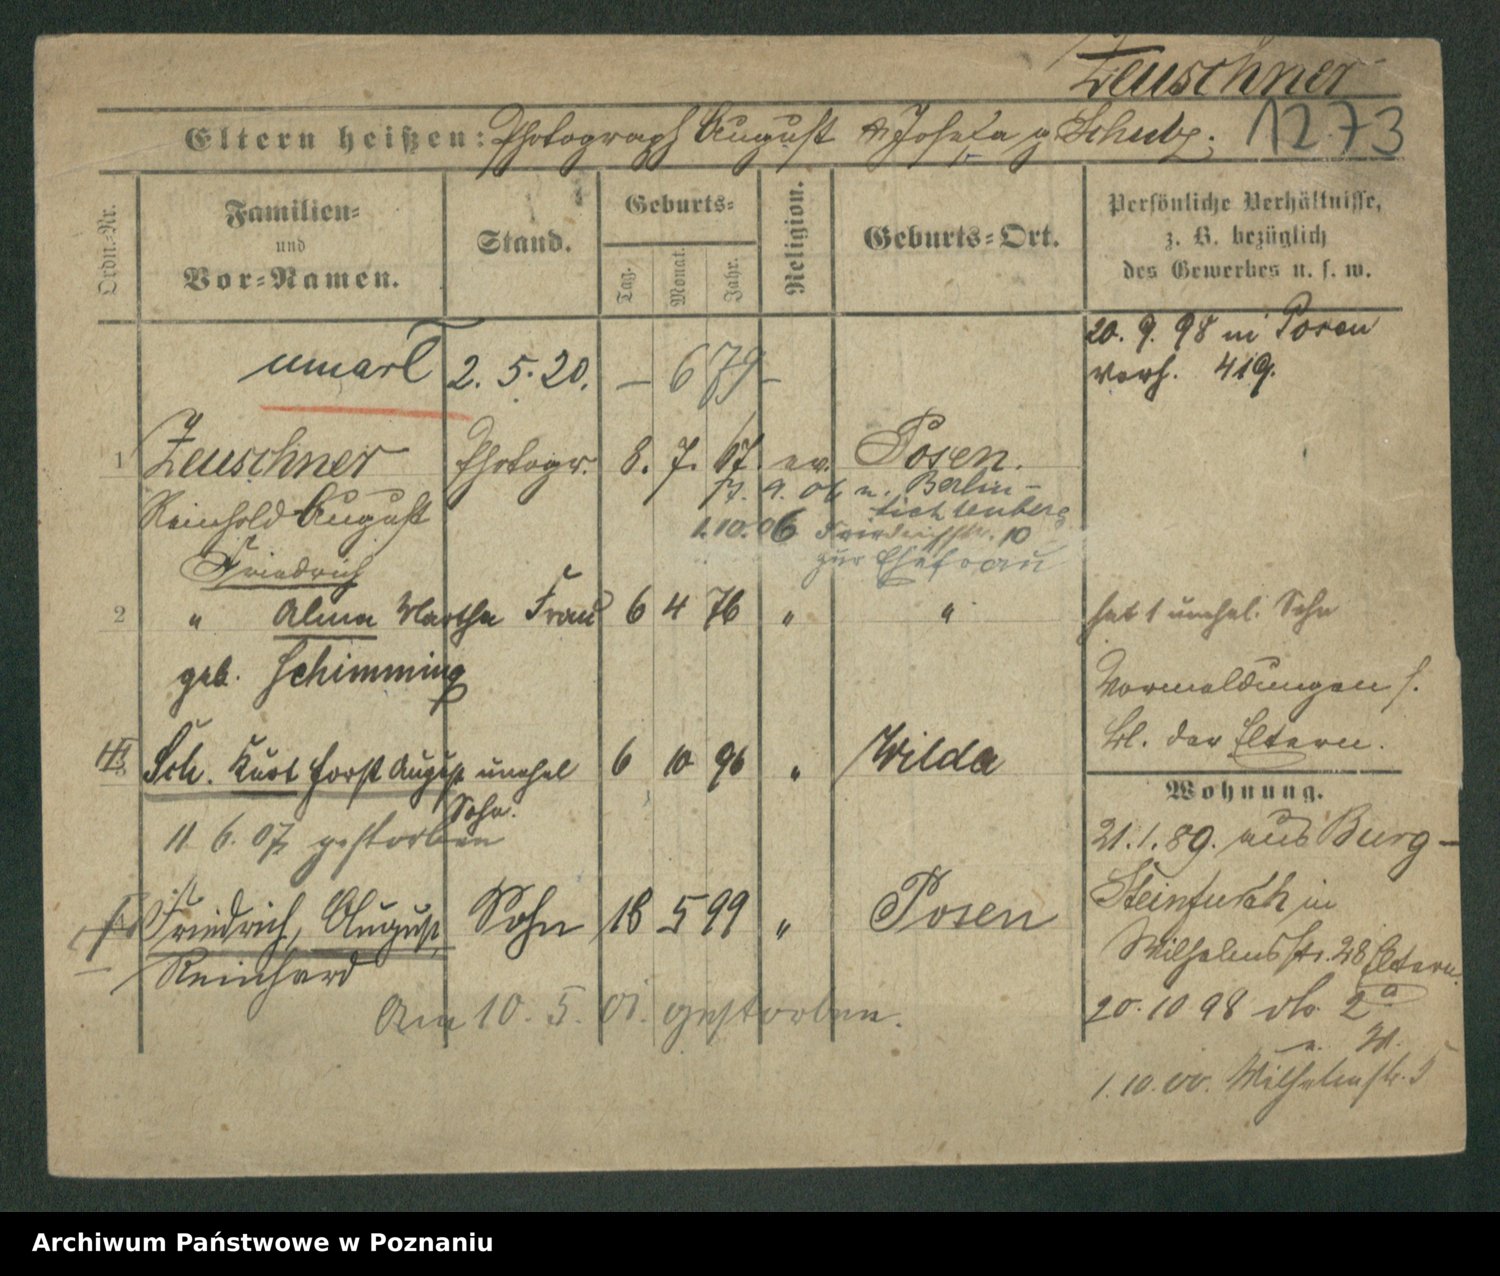 Zeuschner
Eltern heißen: Photograph August & Josefa g Schulz.
1273
Ordn.-Nr.
Familien-
und
Vor-Namen.
Stand.
Geburts-
Tag.
Monat.
Jahr.
Religion.
Geburts-Ort.
Persönliche Verhältnisse,
z. B. bezüglich
des Gewerbes u. s. w.
2. 5. 20. – 679 –
20. 9. 98 in Posen
verh. 419.
1 Zeuschner Photogr. 8. 7. 67. ev. Posen.
Reinhold August
Friedrich
9. 06 n. Berlin-
Lichtenberg
1.10.06 Friedrichstr. 10
zur Ehefrau
2 " Alma Martha Frau 6 4 76 " "
geb. Schimming
hat 1 unehel. Sohn
Vormeldungen s.
Bl. der Eltern.
Sch. Kurt Horst August unehel 6 10 96 " Wilda
Sohn.
11 6. 07 gestorben
Friedrich, August, Sohn 18 5 99 " Posen
Reinhard
Am 10. 5. 01. gestorben.
Wohnung.
21.1.89. aus Burg-
Steinfurth in
Wilhelmstr. 28 Eltern
20. 10 98 do. 2a
1. 10. 00. Wilhelmstr. 5
Archiwum Państwowe w Poznaniu